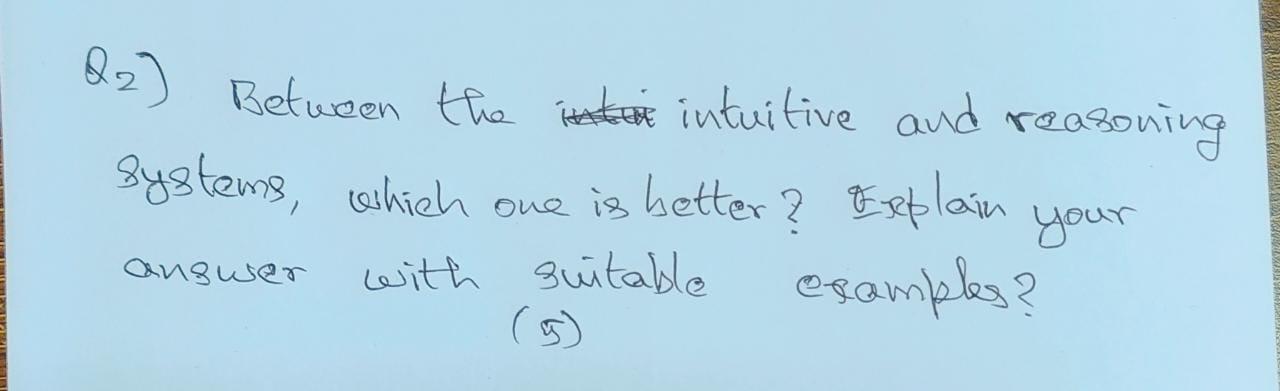 Q2) Between the intuitive and reasoning
systems, which one is better? Explain your
answer with suitable examples?
(5)